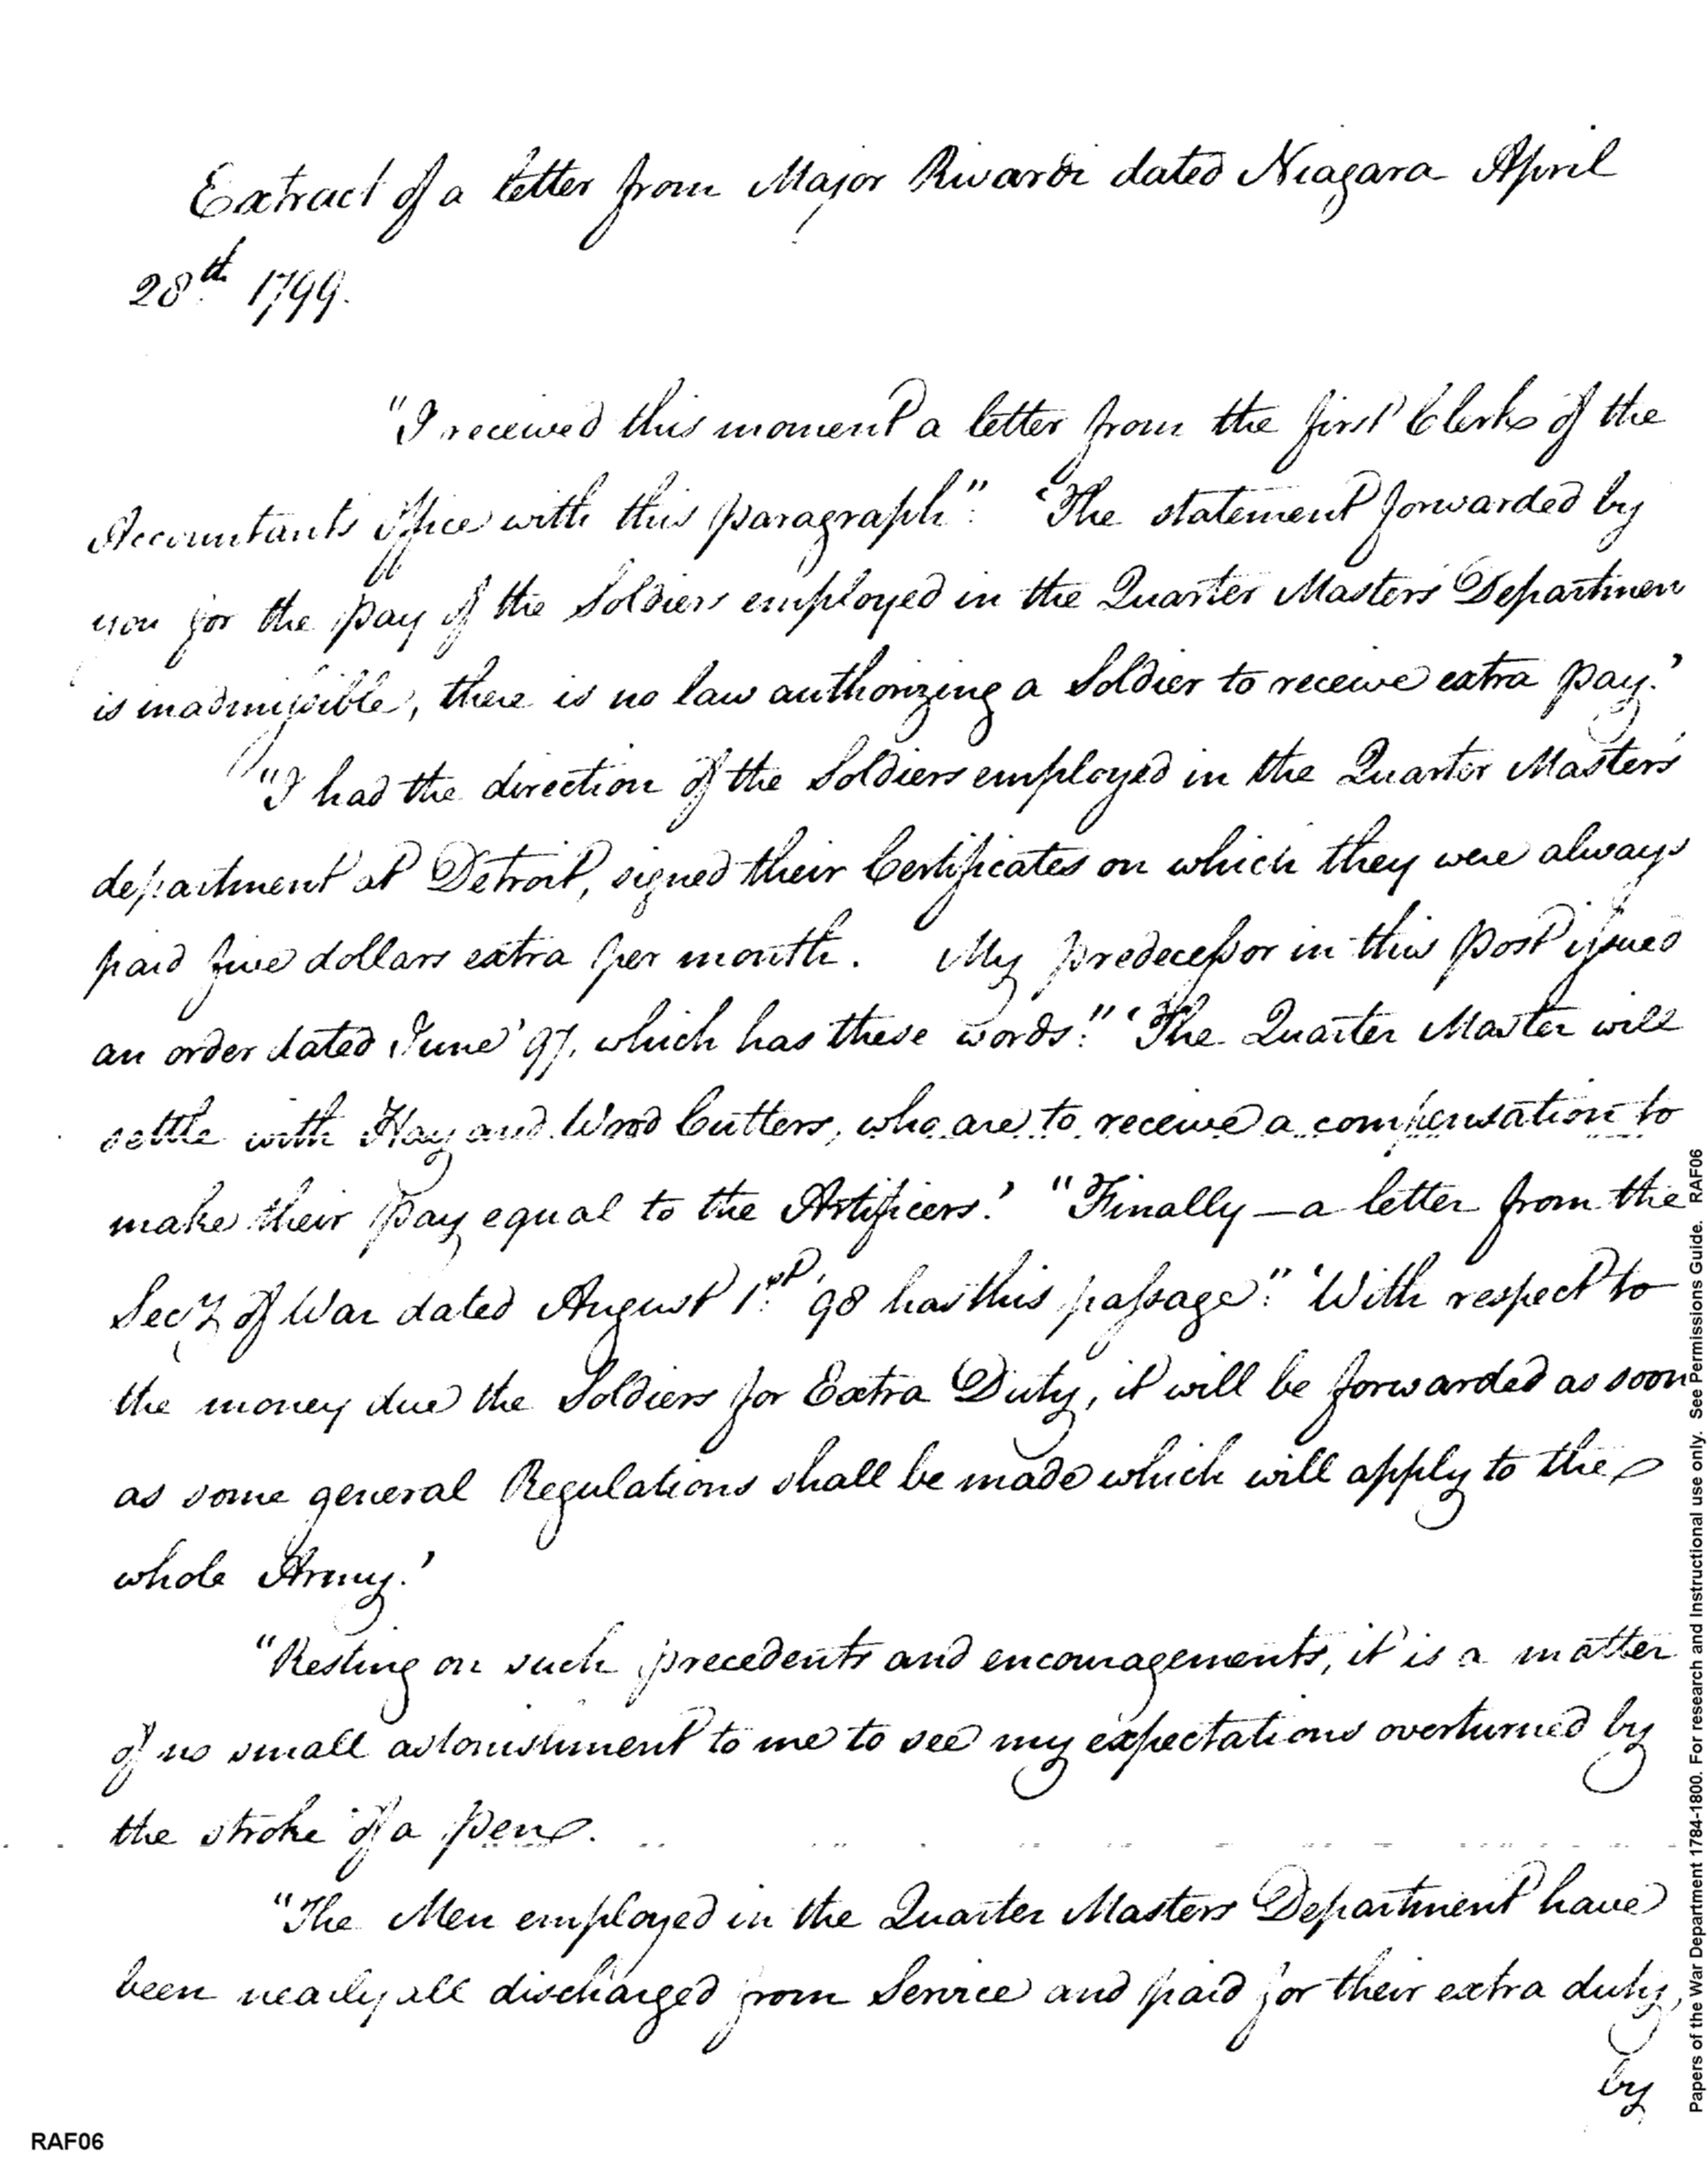 Extract of a letter from Major Rivardi dated Niagara April
28th 1799.
"I received this moment a letter from the first Clerk of the
Accountants Office with this paragraph": 'The statement forwarded by
you for the pay of the Soldiers employed in the Quarter Master's Departmen
is inadmissible, there is no law authorizing a Soldier to receive extra pay.'
"I had the direction of the Soldiers employed in the Quarter Master's
department at Detroit, signed their Certificates on which they were always
paid five dollars extra per month. My predecessor in this post issued
an order dated June '97, which has these words:" 'The Quarter Master will
settle with Hay and Wood Cutters, who are to receive a compensation to
make their pay equal to the Artificers.' "Finally — a letter from the
Secy of War dated August 1st '98 has this passage": 'With respect to
the money due the Soldiers for Extra Duty, it will be forwarded as soon
as some general Regulations shall be made which will apply to the
whole Army.'
"Resting on such precedents and encouragements, it is a matter
of no small astonishment to me to see my expectations overturned by
the stroke of a pen.
"The Men employed in the Quarter Masters Department have
been nearly all discharged from Service and paid for their extra duty,
by
RAF06
Papers of the War Department 1784-1800. For research and Instructional use only. See Permissions Guide. RAF06